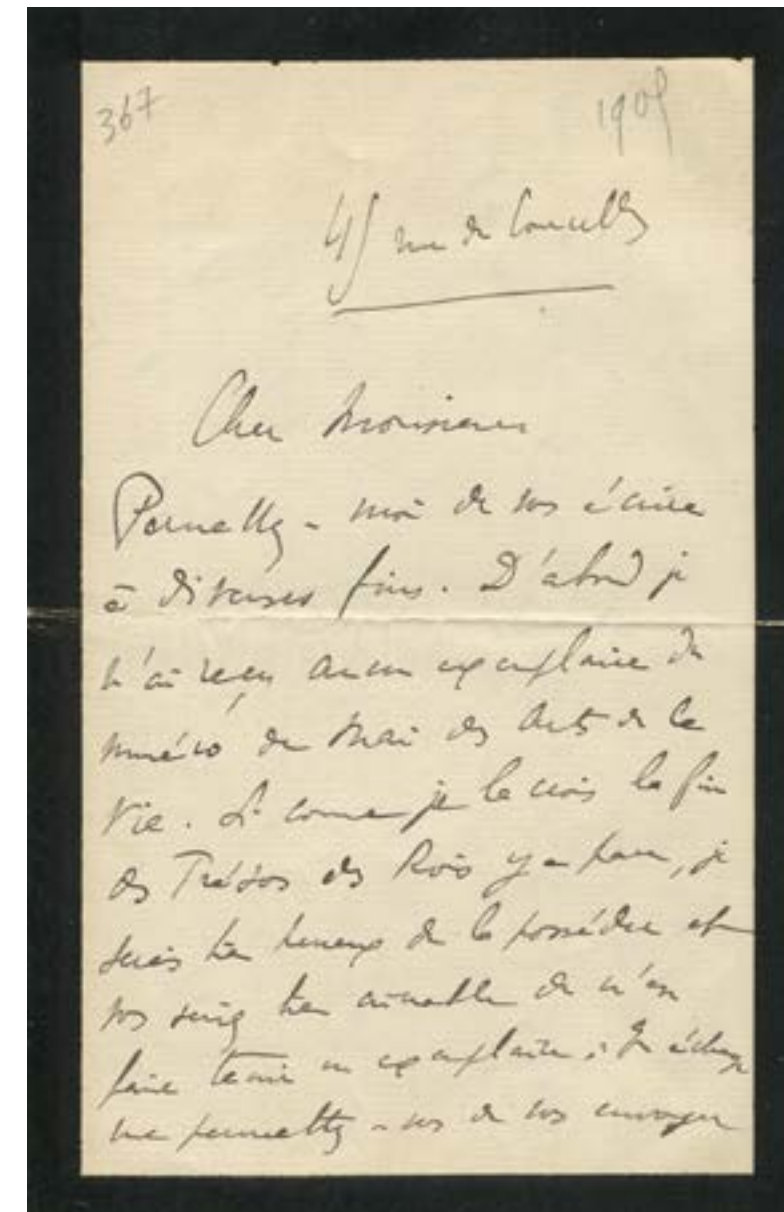 367
1905
45 rue de Courcelles
Cher Monsieur
Permettez-moi de vous écrire
à diverses fins. D'abord je
n'ai reçu aucun exemplaire du
numéro de Mai des Arts de la
Vie. Si comme je le crois la fin
des Trésors des Rois y a paru, je
serais très heureux de la posséder et
vous seriez très aimable de m'en
faire tenir un exemplaire; En échange
me permettez-vous de vous envoyer